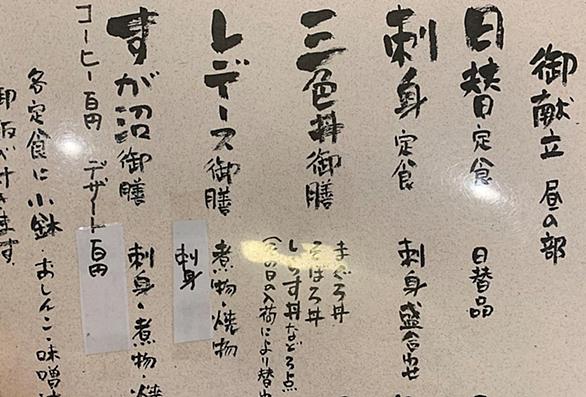 御献立 昼の部
日替定食 日替品
刺身定食 刺身盛合わせ
三色丼御膳 まぐろ丼
そぼろ丼
しらす丼など3点
(その日の入荷により替わ
レデース御膳 煮物・焼物
刺身
すが沼御膳 刺身・煮物・焼
コーヒー百円 デザート百円
各定食に小鉢・おしんこ・味噌汁
御飯が付きます